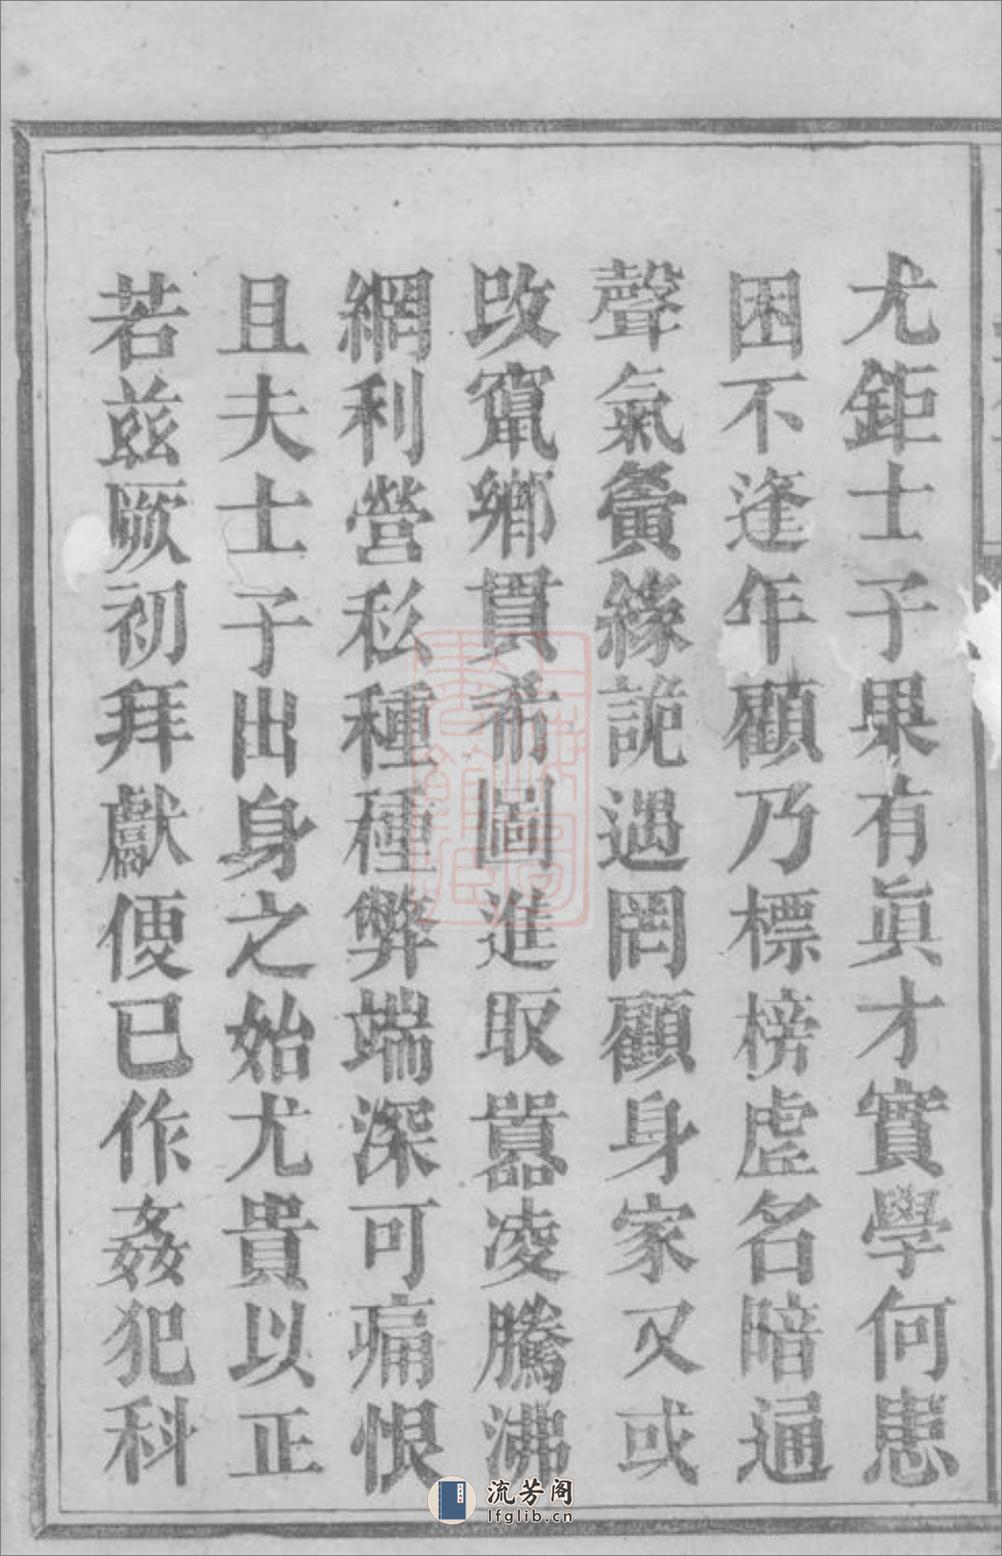 尤鉅士子果有眞才實學何患
困不逢年顧乃標榜虛名暗通
聲氣夤緣詭遇罔顧身家又或
改竄鄉貫希圖進取囂凌騰沸
網利營私種種弊端深可痛恨
且夫士子出身之始尤貴以正
若茲厥初拜獻便已作姦犯科
流芳阁
lfglib.cn